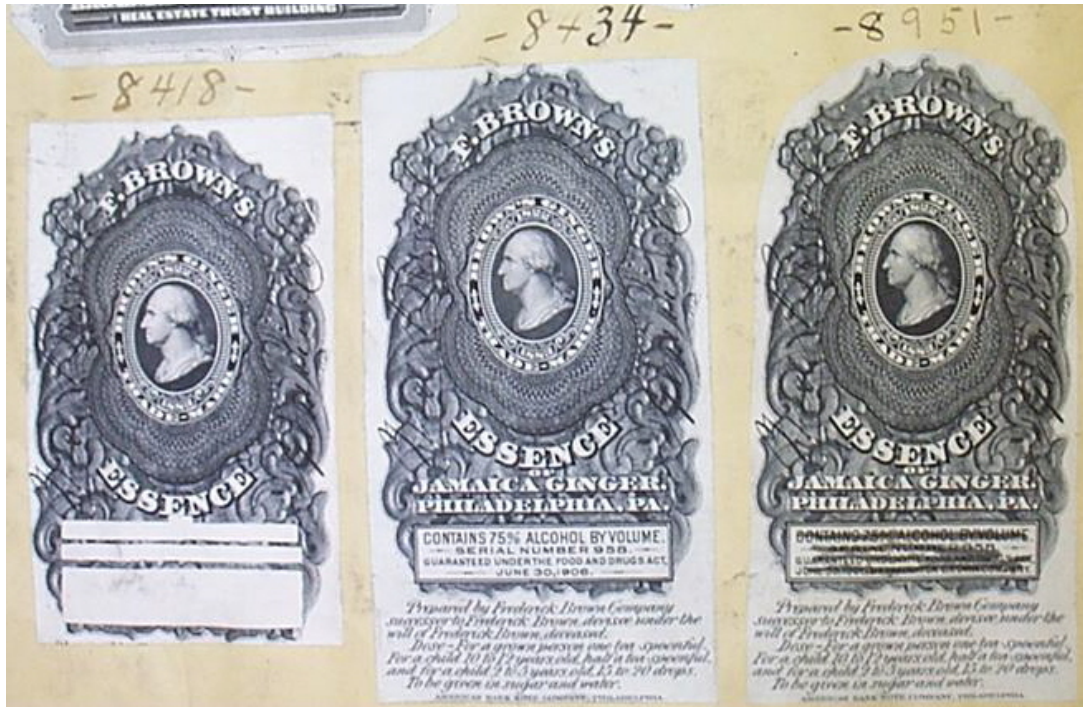 [REAL ESTATE TRUST BUILDING]
-8418-
F. BROWN'S
BROWN'S GINGER
TRADE MARK
ESSENCE
-8434-
F. BROWN'S
BROWN'S GINGER
TRADE MARK
ESSENCE
OF
JAMAICA GINGER,
PHILADELPHIA, PA.
CONTAINS 75% ALCOHOL BY VOLUME.
SERIAL NUMBER 958.
GUARANTEED UNDER THE FOOD AND DRUGS ACT,
JUNE 30, 1906.
Prepared by Frederick Brown Company
successor to Frederick Brown, devisee under the
will of Frederick Brown, deceased.
Dose - For a grown person one tea-spoonful.
For a child 10 to 12 years old, half a tea-spoonful,
and for a child 2 to 3 years old, 15 to 20 drops.
To be given in sugar and water.
AMERICAN BANK NOTE COMPANY, PHILADELPHIA
-8951-
F. BROWN'S
BROWN'S GINGER
TRADE MARK
ESSENCE
OF
JAMAICA GINGER,
PHILADELPHIA, PA.
CONTAINS 75% ALCOHOL BY VOLUME
SERIAL NUMBER
GUARANTEED
Prepared by Frederick Brown Company
successor to Frederick Brown, devisee under the
will of Frederick Brown, deceased.
Dose - For a grown person one tea-spoonful.
For a child 10 to 12 years old, half a tea-spoonful,
and for a child 2 to 3 years old, 15 to 20 drops.
To be given in sugar and water.
AMERICAN BANK NOTE COMPANY, PHILADELPHIA